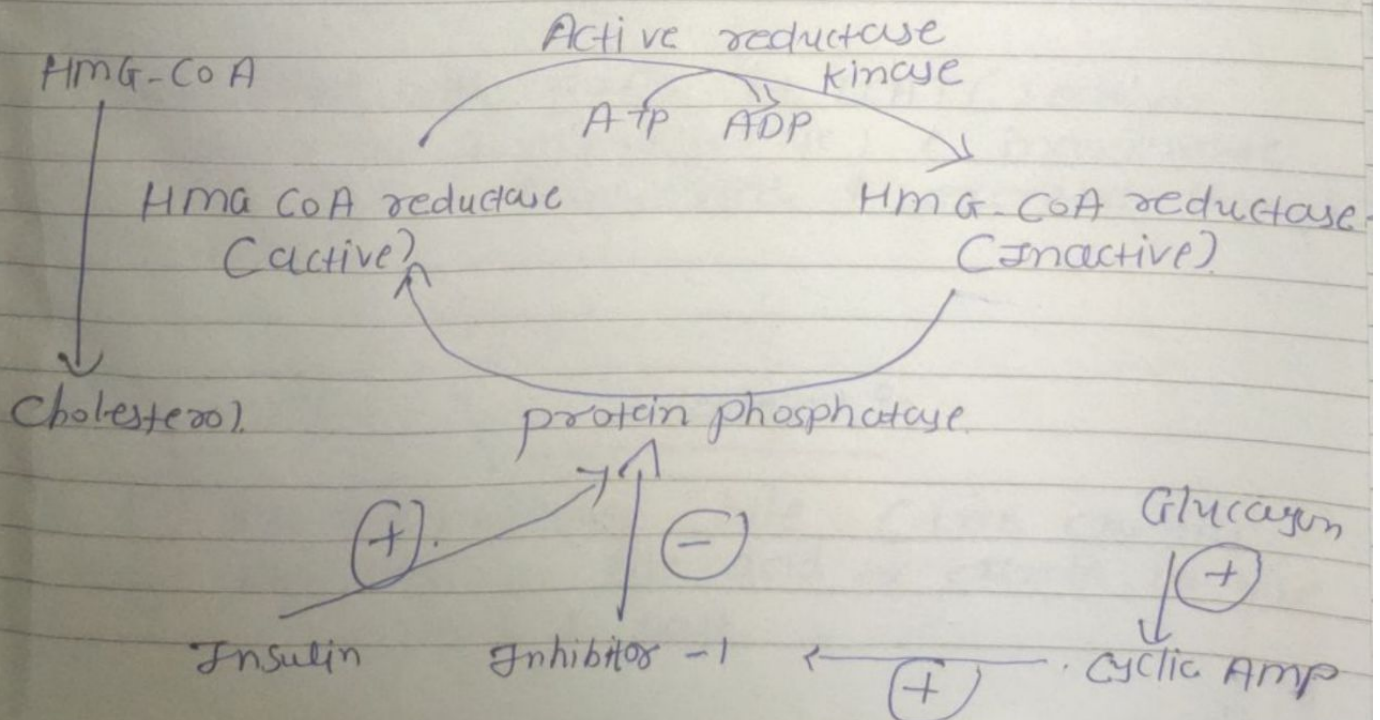 Active reductase
kinase
HMG-CoA
ATP ADP
HMG CoA reductase
(active)
HMG-CoA reductase
(Inactive)
Cholesterol
protein phosphatase
(+)
(-)
Glucagon
(+)
Insulin
Inhibitor -1
(+)
Cyclic AMP